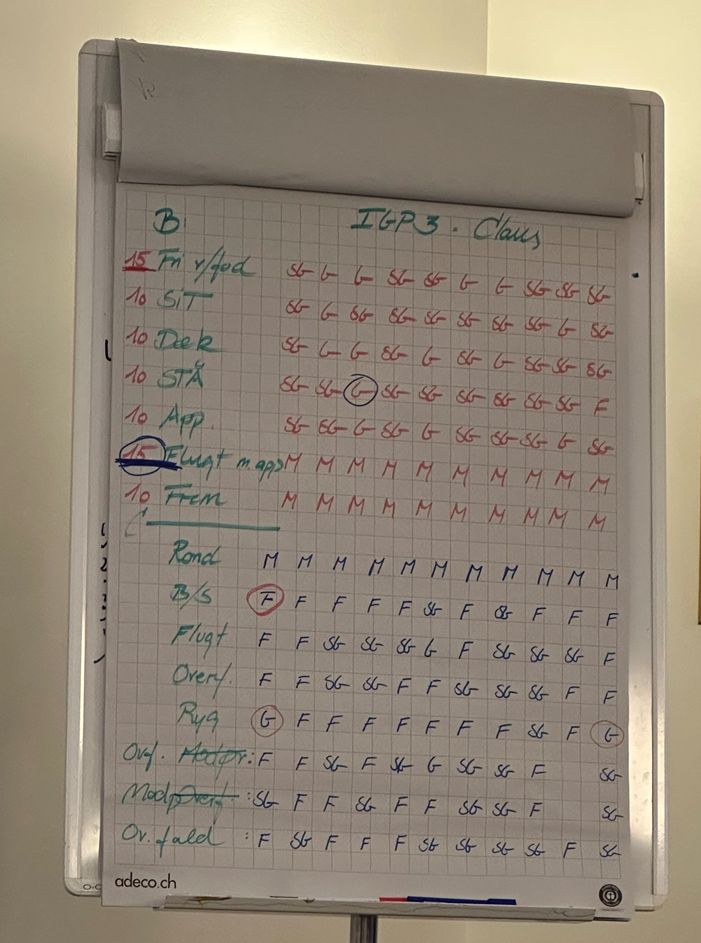 B: IGP3 . Claus
15 Fri v/fod SG G G SG SG G G SG SG SG
10 SiT SG G SG SG SG SG SG SG G SG
10 Dæk SG G G SG G SG G SG SG SG
10 STÅ SG SG G SG SG SG SG SG SG F
10 App. SG SG G SG G SG SG SG G SG
15 Flugt m app M M M M M M M M M M
10 Frem M M M M M M M M M M
C
Rond M M M M M M M M M M M
B/S F F F F F SG F SG F F F
Flugt F F SG SG SG G F SG SG SG F
Overf. F F SG SG F F SG SG SG F F
Ryg G F F F F F F F SG F G
Ovf. : F F SG F SG G SG SG F SG
Mod : SG F F SG F F SG SG F SG
Ov.fald : F SG F F F SG SG SG SG F SG
adeco.ch